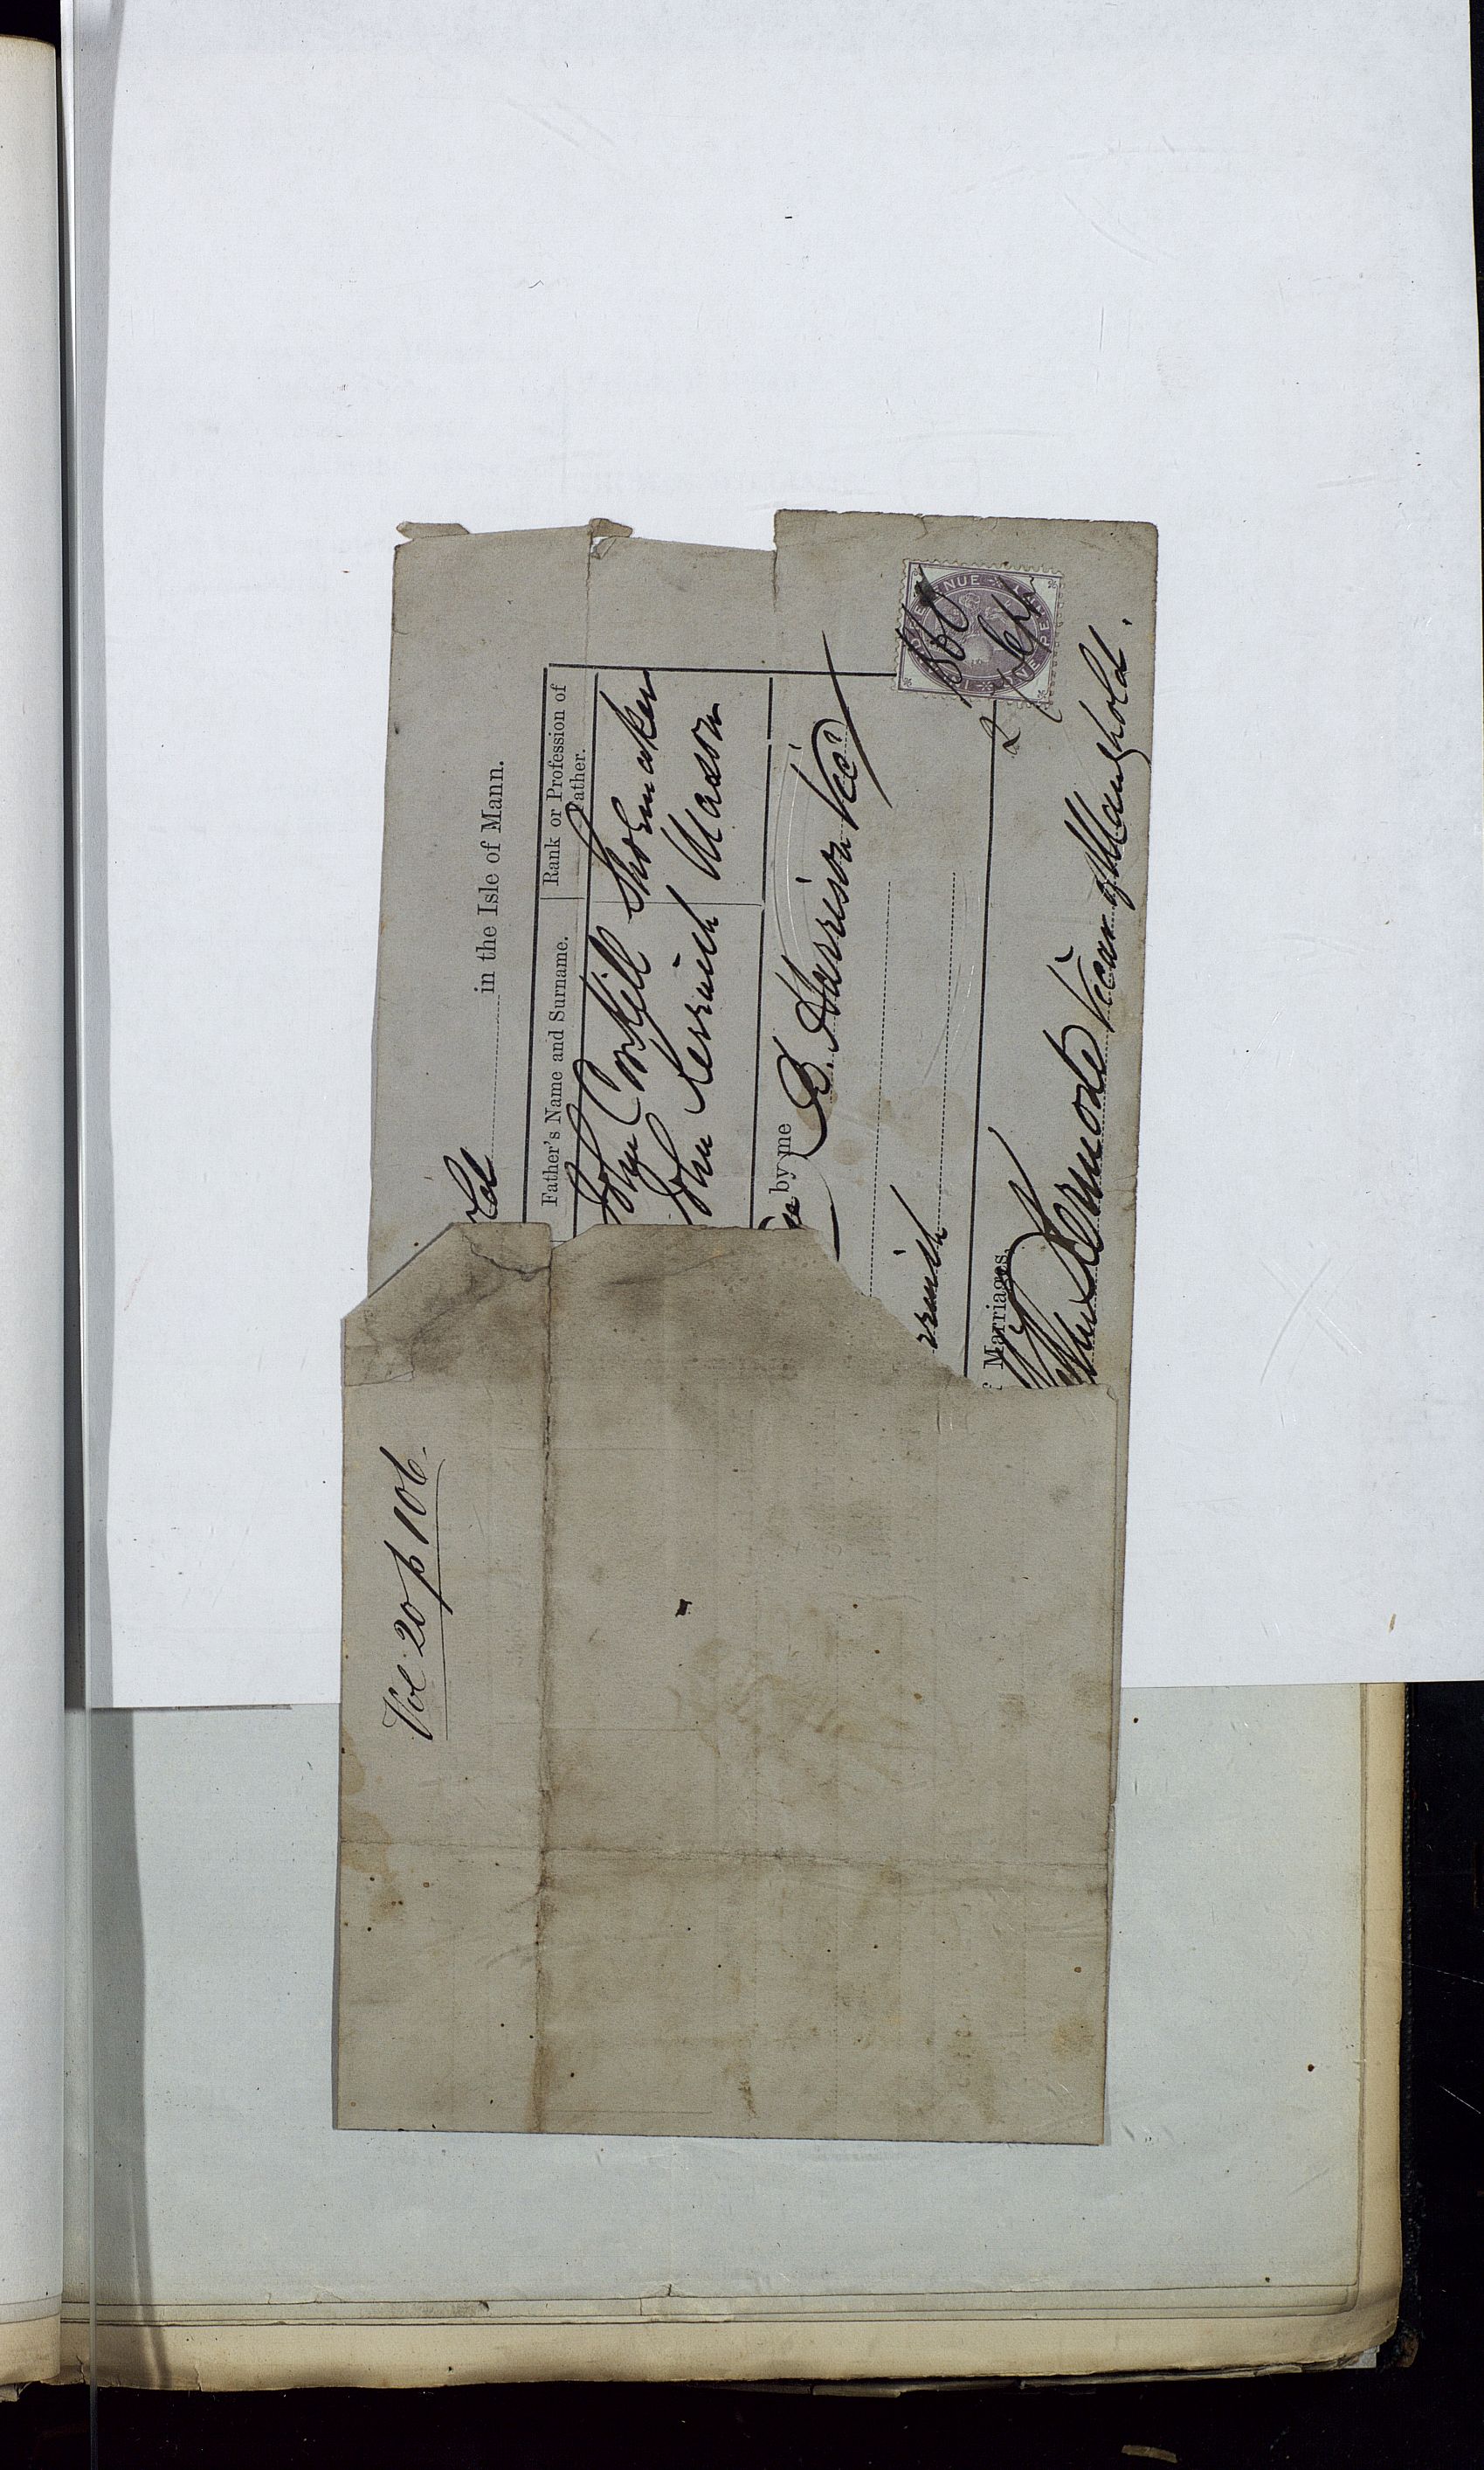 ld in the Isle of Mann.
Father's Name and Surname. Rank or Profession of Father.
John Corkill Shoemaker
John Kerruish Mason
by me B. Harrison Vicr
rruish
f Marriages
Wm Kermode Vicar of Maughold.
INLAND REVENUE ONE PENNY
Sept
Vol. 20 p 106.